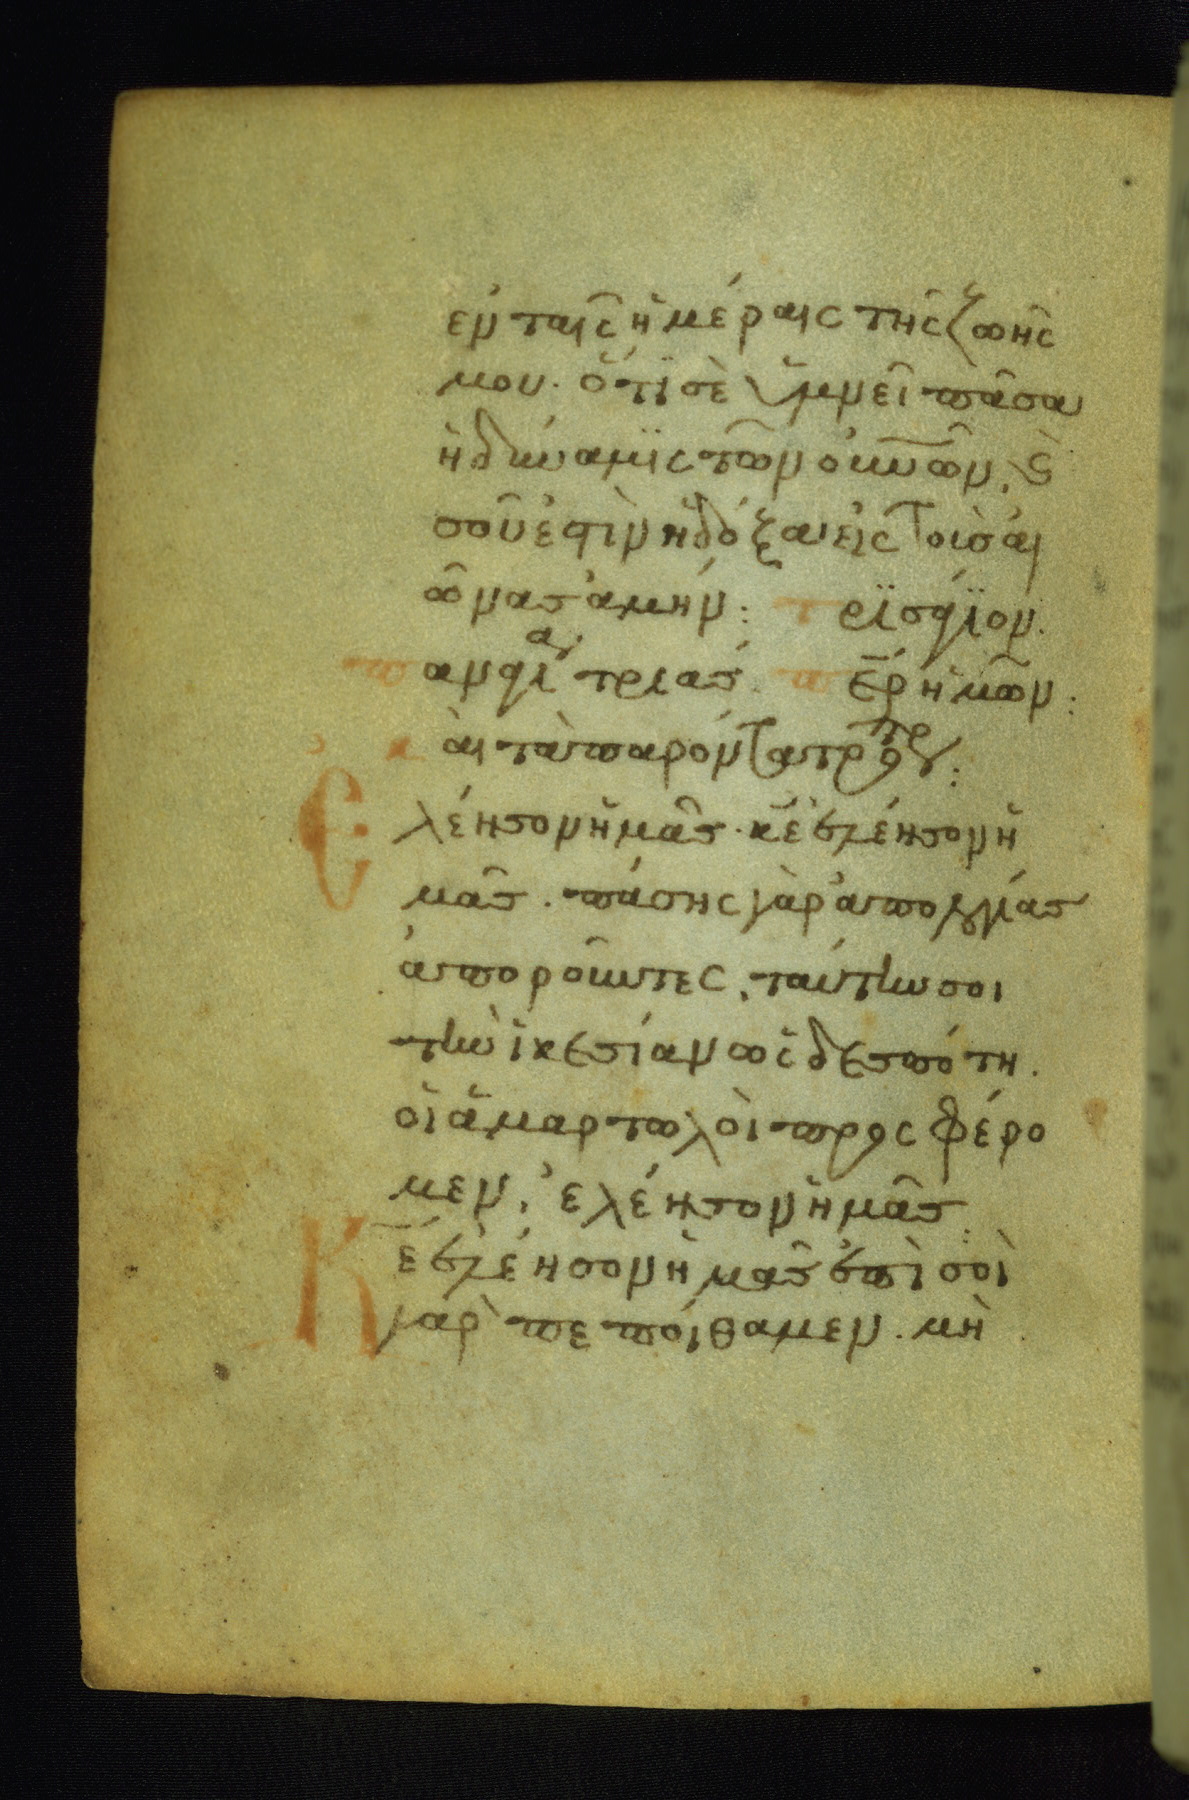 ἐν ταῖς ἡμέραις τῆς ζωῆς
μου. ὅτι σὲ ὑμνεῖ πᾶσα
ἡ δύναμις τῶν οὐνῶν, ϗ
σοῦ ἐστὶν ἡ δόξα εἰς τοὺς αἰ
ῶνας ἀμήν: τρϊσάγϊον.
παναγία τριάς. περ ἡμῶν:
καὶ τὰ παρόντα τροπ:
Ἐλέησον ἡμᾶς κε ἐλέησον ἡ
μᾶς. πάσης γὰρ ἀπολογίας
ἀποροῦντες, ταύτην σοι
τὴν ἱκεσίαν ὡς δεσπότη.
οἱ ἁμαρτωλοὶ προσφέρο
μεν, ἐλέησον ἡμᾶς:
Κε ἐλέησον ἡμᾶς ἐπὶ σοὶ
γὰρ πεποίθαμεν. μὴ